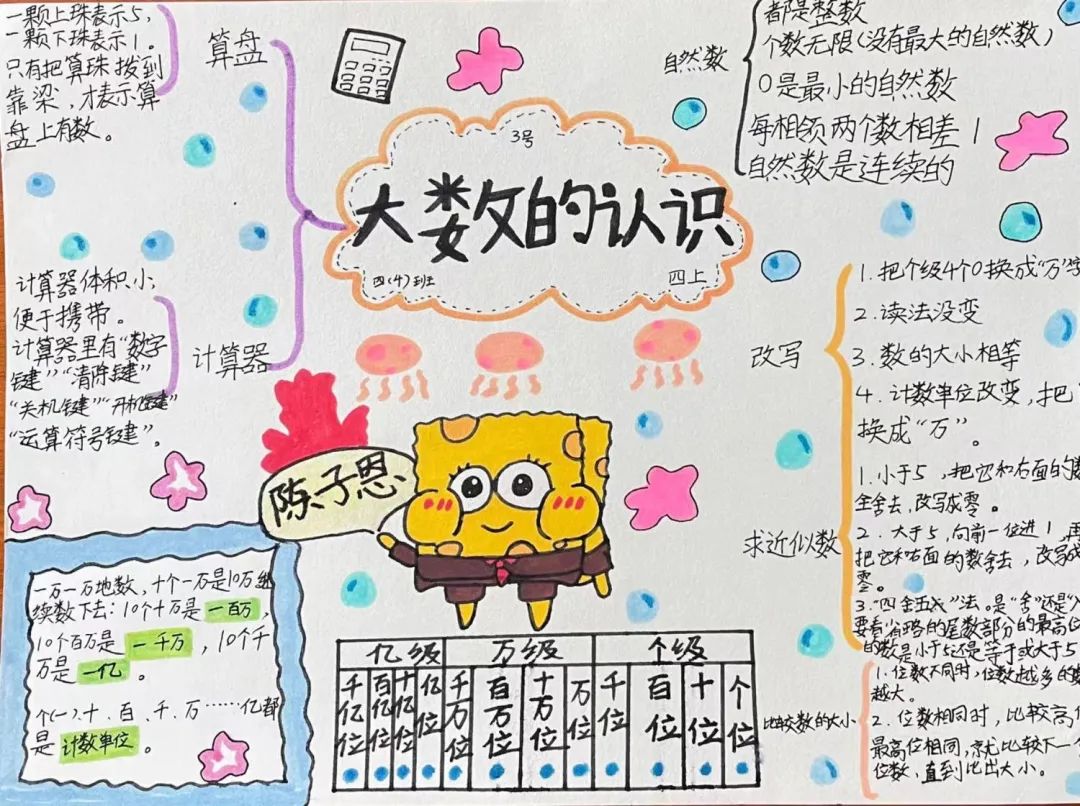 一颗上珠表示5,
一颗下珠表示1。
只有把算珠拨到
靠梁，才表示算
盘上有数。
算盘
计算器体积小,
便于携带。
计算器里有“数字
键”“清除键”
“关机键”“开机键”
“运算符号键”。
计算器
3号
大数的认识
四(4)班
四上
自然数
都是整数
个数无限(没有最大的自然数)
0是最小的自然数
每相领两个数相差1
自然数是连续的
改写
1.把个级4个0换成“万”字
2.读法没变
3.数的大小相等
4.计数单位改变,把
换成“万”。
求近似数
1.小于5,把它和右面的数
全舍去,改写成零。
2.大于5,向前一位进1,再
把它和右面的数舍去,改写成
零。
3.“四舍五入”法。是“舍”还是“入”
要看省略的尾数部分的最高位
的数是小于5还是等于或大于5
比较数的大小
1.位数不同时,位数越多的数
越大。
2.位数相同时,比较高位
最高位相同,就比较下一个
位数,直到比出大小。
陈子恩
一万一万地数,十个一万是10万继
续数下去:10个十万是一百万,
10个百万是一千万,10个千
万是一亿。
个(一)、十、百、千、万……亿都
是计数单位。
亿级 万级 个级
千亿位 百亿位 十亿位 亿位 千万位 百万位 十万位 万位 千位 百位 十位 个位